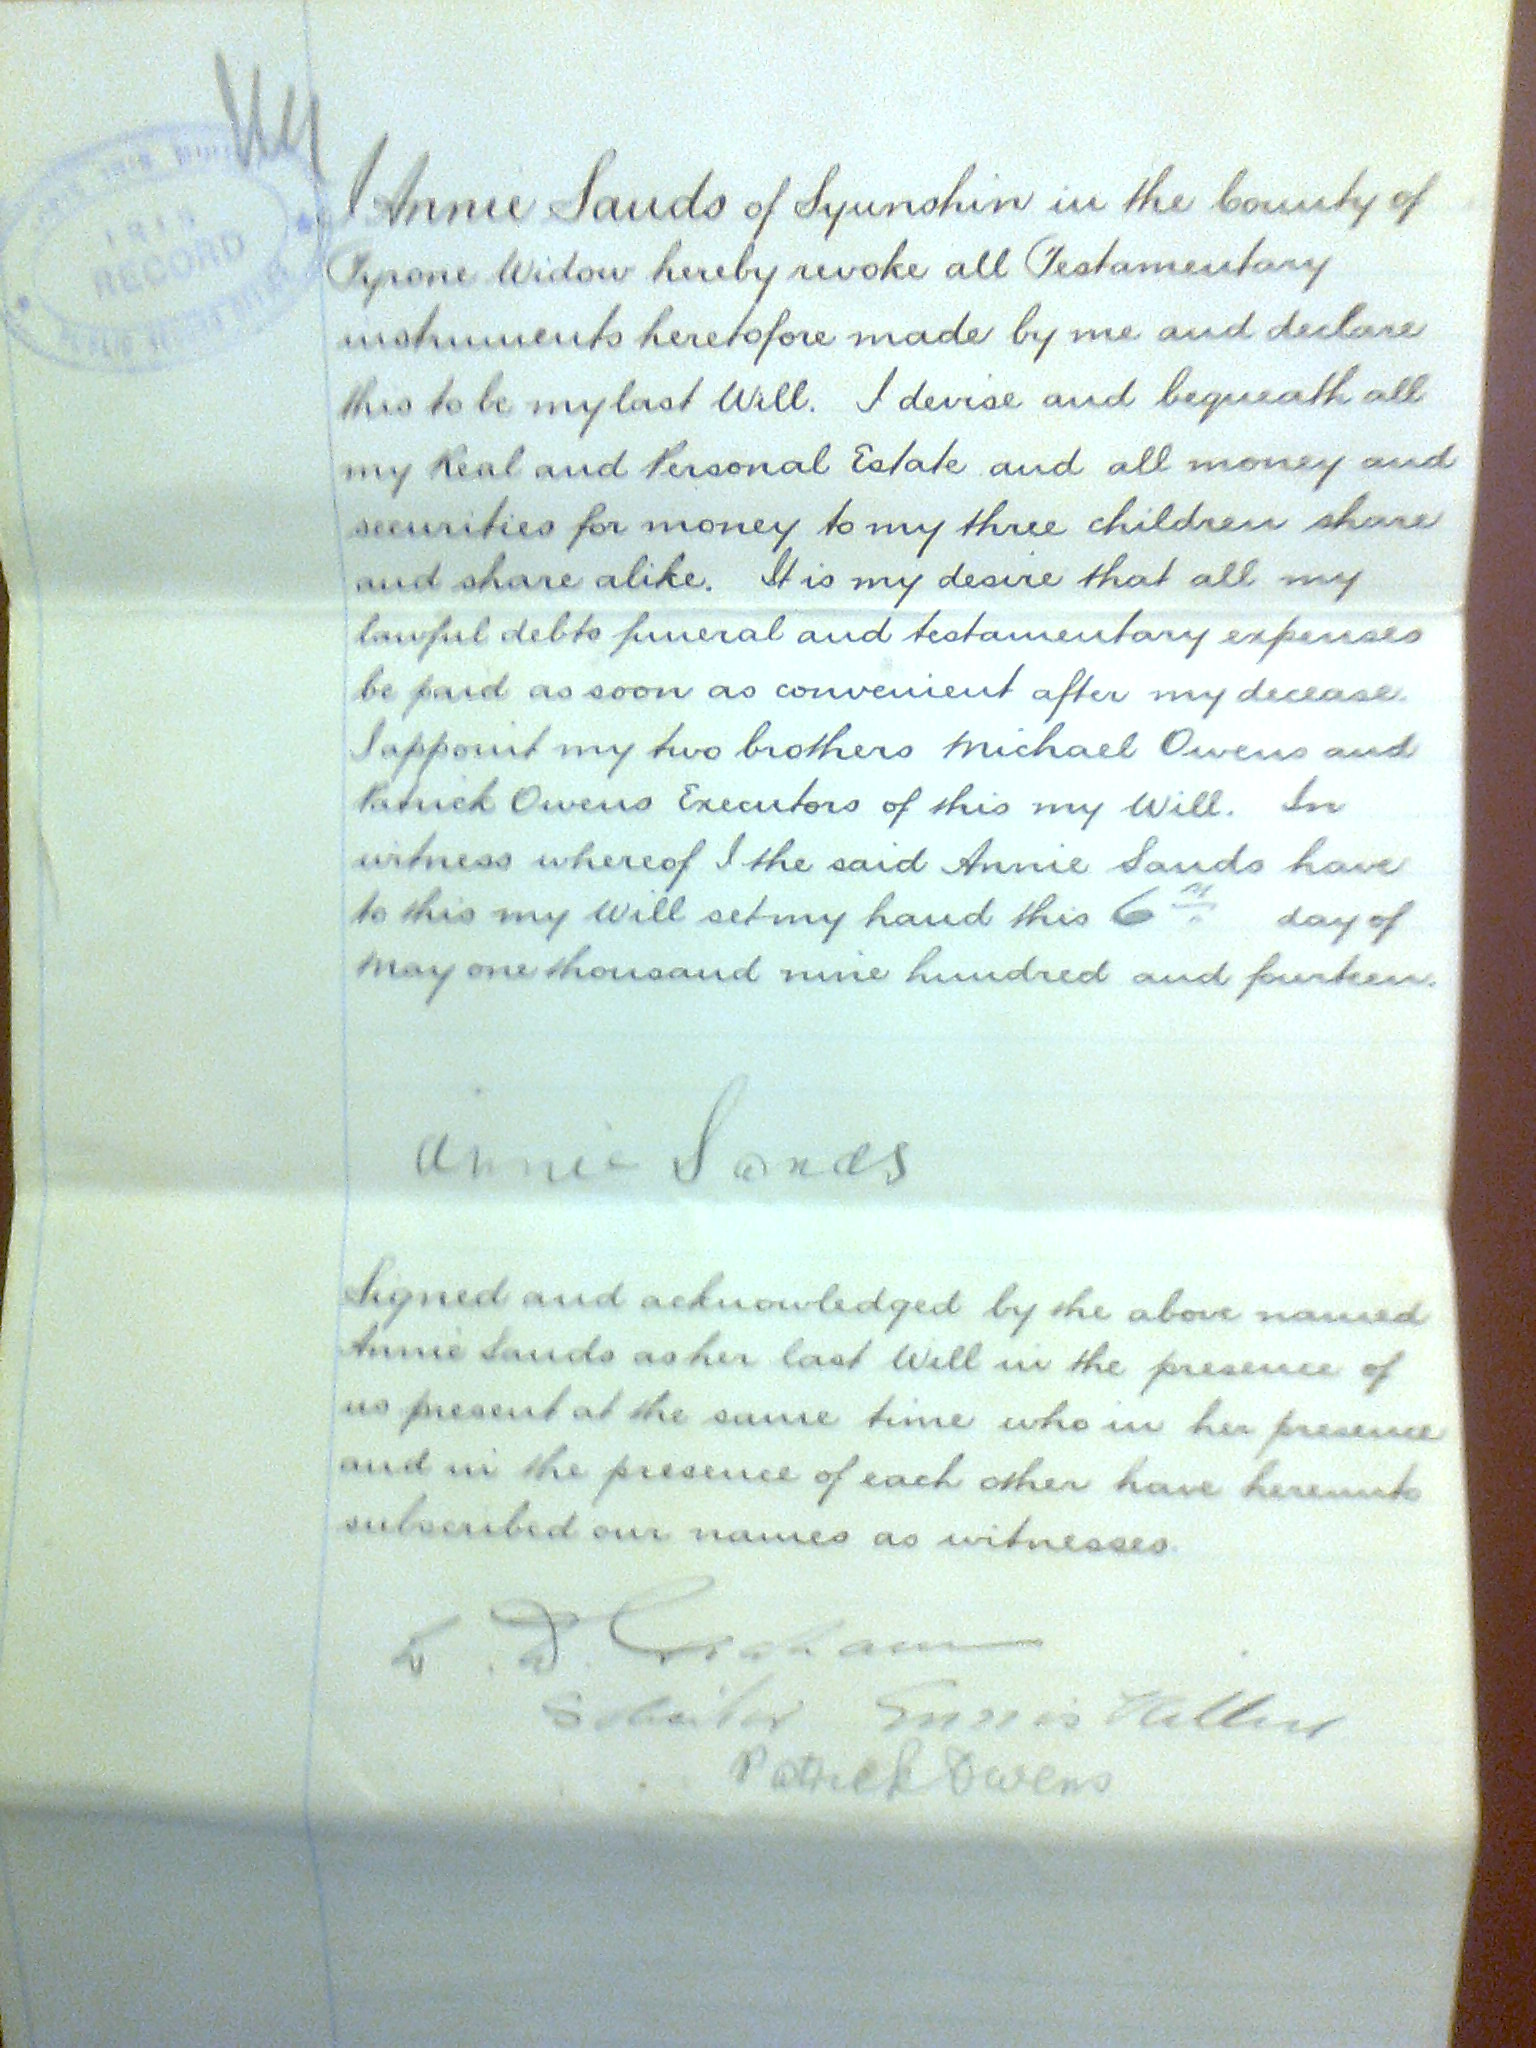 RECORD
I Annie Sands of Syunshin in the County of
Tyrone Widow hereby revoke all Testamentary
instruments heretofore made by me and declare
this to be my last Will. I devise and bequeath all
my Real and Personal Estate and all money and
securities for money to my three children share
and share alike. It is my desire that all my
lawful debts funeral and testamentary expenses
be paid as soon as convenient after my decease.
I appoint my two brothers Michael Owens and
Patrick Owens Executors of this my Will. In
witness whereof I the said Annie Sands have
to this my Will set my hand this 6th day of
May one thousand nine hundred and fourteen.
Annie Sands
Signed and acknowledged by the above named
Annie Sands as her last Will in the presence of
us present at the same time who in her presence
and in the presence of each other have hereunto
subscribed our names as witnesses.
Graham
Solicitor Enniskillen
Patrick Owens